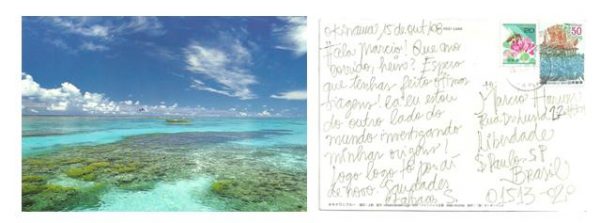 Okinawa, 15 de out/08
POST CARD
Fala Marcio! Que ano
corrido, hein? Espero
que tenhas feito ótimas
viagens! Cá eu estou
do outro lado do
mundo investigando
minhas origens!
Logo logo tô por aí
de novo. Saudades
S.
20
50
Marcio
Rua
Liberdade
S. Paulo. SP
Brasil
01513-020